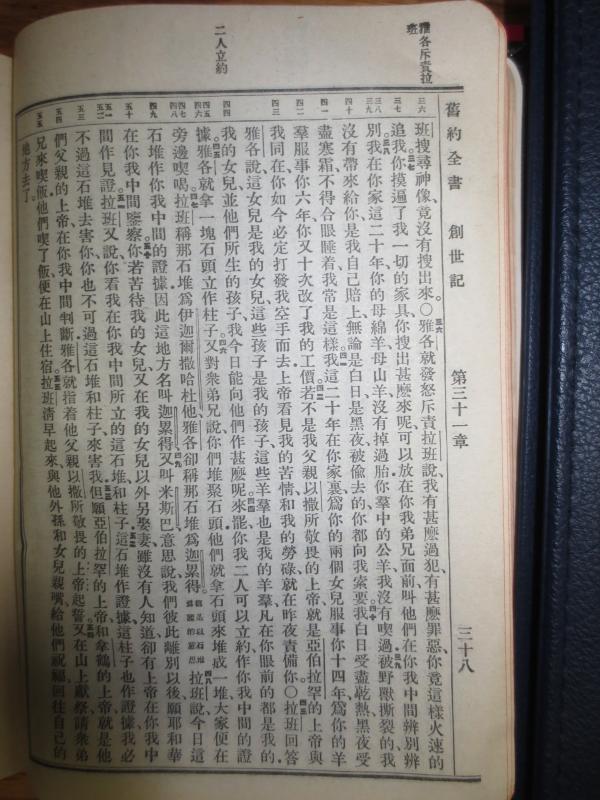 舊約全書 創世記 第三十一章 三十八
雅各斥責拉班
二人立約
班搜尋神像竟沒有搜出來○雅各就發怒斥責拉班說我有甚麼過犯有甚麼罪惡你竟這樣火速的
追我你摸遍了我一切的家具你搜出甚麼來呢可以放在你我弟兄面前叫他們在你我中間辨別辨
別我在你家這二十年你的母綿羊母山羊沒有掉過胎你羣中的公羊我沒有喫過被野獸撕裂的我
沒有帶來給你是我自己賠上無論是白日是黑夜被偷去的你都向我索要我白日受盡乾熱黑夜受
盡寒霜不得合眼睡着我常是這樣我這二十年在你家裏爲你的兩個女兒服事你十四年爲你的羊
羣服事你六年你又十次改了我的工價若不是我父親以撒所敬畏的上帝就是亞伯拉罕的上帝與
我同在你如今必定打發我空手而去上帝看見我的苦情和我的勞碌就在昨夜責備你○拉班回答
雅各說這女兒是我的女兒這些孩子是我的孩子這些羊羣也是我的羊羣凡在你眼前的都是我的
我的女兒並他們所生的孩子我今日能向他們作甚麼呢來罷你我二人可以立約作你我中間的證
據雅各就拿一塊石頭立作柱子又對衆弟兄說你們堆聚石頭他們就拿石頭來堆成一堆大家便在
旁邊喫喝拉班稱那石堆爲伊迦爾撒哈杜他雅各卻稱那石堆爲迦累得拉班說今日這
石堆作你我中間的證據因此這地方名叫迦累得又叫米斯巴意思說我們彼此離別以後願耶和華
在你我中間鑒察你若苦待我的女兒又在我的女兒以外另娶妻雖沒有人知道卻有上帝在你我中
間作見證拉班又說你看我在你我中間所立的這石堆和柱子這石堆作證據這柱子也作證據我必
不過這石堆去害你你也不可過這石堆和柱子來害我但願亞伯拉罕的上帝和拿鶴的上帝就是他
們父親的上帝在你我中間判斷雅各就指着他父親以撒所敬畏的上帝起誓又在山上獻祭請衆弟
兄來喫飯他們喫了飯便在山上住宿拉班清早起來與他外孫和女兒親嘴給他們祝福回往自己的
地方去了